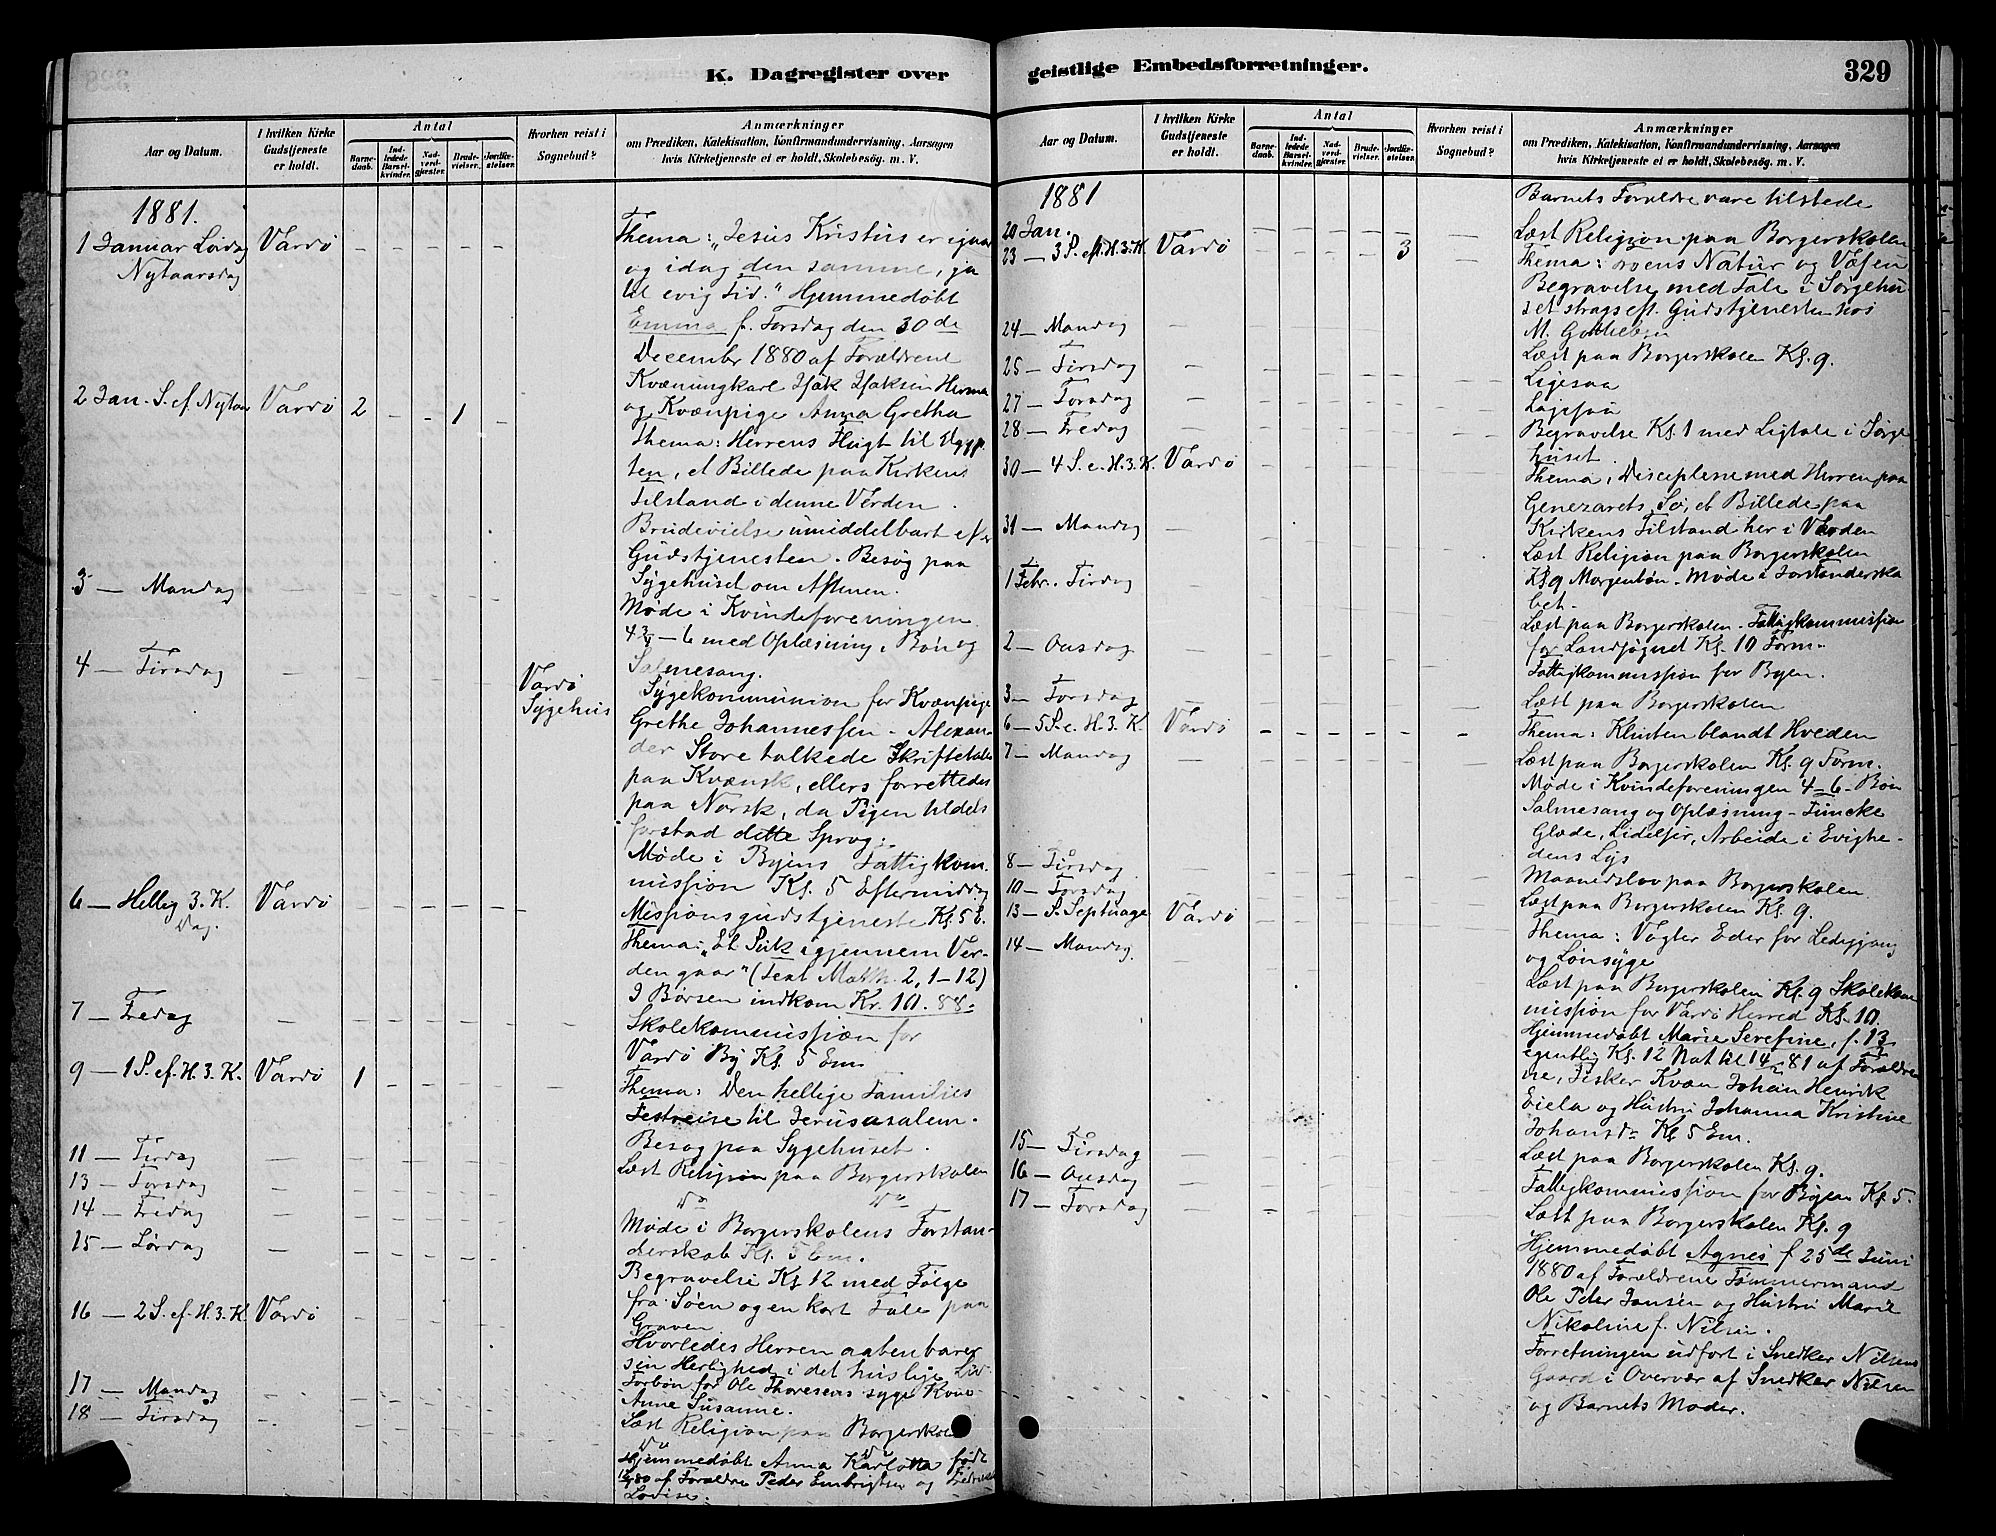 K. Dagregister over
Aar og Datum.
I hvilken Kirke
Gudstjeneste
er holdt.
Antal
Barne-
daab.
Ind-
ledede
Barsel-
kvinder.
Nad-
verd-
gjæster.
Brude-
vielser.
Jordfæ-
stelser.
Hvorhen reist i
Sognebud?
Anmærkninger
om Prædiken, Katekisation, Konfirmandundervisning, Aarsagen
hvis Kirketjeneste ei er holdt, Skolebesøg. m. V.
1881.
1 Januar Lördag Vardö
Nytaarsdag
Thema: „Jesus Kristus er igaar
og idag den samme, ja
til evig Tid." Hjemmedöbt
Emma f. Torsdag den 30 de
December 1880 af Forældrene
Kvænungkarl Isak Isaksen
og Kvænpige Anna Gretha
2 Jan. S. ef Nytaar Vardö 2 1
Thema: Herrens Flugt til Ægyp
ten, et Billede paa Kirkens
Tilstand i denne Verden.
Brudevielse umiddelbart ef
Gudstjenesten. Besög paa
Sygehuset om Aftenen.
3 — Mandag
Möde i Kvindeforeningen
4 3/4 – 6 med Oplæsning, Bön og
Salmesang.
4 — Tirsdag
Vardö
Sygehus
Sygekommunion for Kvænpige
Grethe Johannessen – Alexan-
der Store tolkede Skriftetalen
paa Kvænsk, ellers forrettedes
paa Norsk, da Pigen tildels
forstod dette Sprog.
Möde i Byens Fattigkom
mission Kl. 5 Eftermiddag
6 — Hellig 3. K. Vardö
Dag.
Missionsgudstjeneste Kl 5 E.
Thema: „Et igjennem Ver-
den gaar" (Text Matth. 2, 1–12)
I Børsen indkom Kr. 10. 88
7 — Fredag
Skolekommission for
Vardö By Kl. 5 Em
9 — 1 S. ef. H. 3. K. Vardö 1
Thema: Den hellige Families
Festreise til Jerusalem.
Besög paa Sygehuset.
11 — Tirsdag
Læst Religion paa Borgerskolen
13 — Torsdag
Do Do
14 — Fredag
Möde i Borgerskolens Forstan-
derskab Kl. 5 Em.
15 — Lördag
Begravelse Kl 12 med Fölge
fra Söen og en kort Tale paa
Graven
16 — 2 S. ef. H. 3. K. Vardö
Hvorledes Herren aabenbarer
sin Herlighed i det huslige Liv
Forbön for Ole Thoresens syge Kone
Anne Susanne.
17 — Mandag
Læst Religion paa Borgerskolen
18 — Tirsdag
Do Do
Hjemmedöbt Anna Karlotta född
af Forældre Peder Embrigtsen og
Lovise.
geistlige Embedsforretninger.
329
Aar og Datum.
I hvilken Kirke
Gudstjeneste
er holdt.
Antal
Barne-
daab.
Ind-
ledede
Barsel-
kvinder.
Nad-
verd-
gjæster.
Brude-
vielser.
Jordfæ-
stelser.
Hvorhen reist i
Sognebud?
Anmærkninger
om Prædiken, Katekisation, Konfirmandundervisning, Aarsagen
hvis Kirketjeneste ei er holdt, Skolebesøg. m. V.
1881
Barnets Forældre vare tilstede
20 Jan.
Læst Religion paa Borgerskolen
23 — 3 S. ef. H. 3. K. Vardö 3
Thema: Troens Natur og Væsen
Begravelse med Tale i Sörgehu
set strags eft. Gudstjenesten hos
M.
24 — Mandag
Læst paa Borgerskolen Kl. 9.
25 — Tirsdag
Ligesaa
27 — Torsdag
Ligesaa
28 — Fredag
Begravelse Kl. 1 med Ligtale i Sörge
huset.
30 — 4 S. e. H. 3. K. Vardö
Thema: Disciplene med Herren paa
Genezarets Sö, et Billede paa
Kirkens Tilstand her i Verden
31 — Mandag
Læst Religion paa Borgerskolen
1 Febr. Tirsdag
Kl 9 Morgenbön. Möde i Forstanderska
bet.
2 — Onsdag
Læst paa Borgerskolen. Fattigkommission
for Landsognet Kl. 10 Form.
Fattigkommission for Byen.
3 — Torsdag
Læst paa Borgerskolen
6 — 5 S. e. H. 3. K. Vardö
Thema: Klinten blandt Hveden
7 — Mandag
Læst paa Borgerskolen Kl. 9 Form.
Möde i Kvindeforeningen 4–6. Bön
Salmesang og Oplæsning – Funcke
Glæde, Lidelser, Arbeide i Evighe-
dens Lys
8 — Tirsdag
Maanedslov paa Borgerskolen
10 — Torsdag
Læst paa Borgerskolen Kl. 9.
13 — S. Septuage Vardö
Thema: Vogter Eder for Lediggang
og Lönsyge
14 — Mandag
Læst paa Borgerskolen Kl. 9 Skolekom
mission for Vardö Herred Kl. 10.
Hjemmedöbt Marie Serefine, f. 13
egentlig Kl. 12 Nat til 14 81 af Forældre
ne, Fisker Kvæn Johan Henrik
Eiela og Hustru Johanna Kristine
Johansdr Kl 5 Em.
15 — Tirsdag
Læst paa Borgerskolen Kl. 9.
16 — Onsdag
Fattigkommission for Byen Kl. 5.
17 — Torsdag
Læst paa Borgerskolen Kl. 9
Hjemmedöbt Agnes f 25de Juni
1880 af Forældrene Tömmermand
Ole Peder Jansen og Hustru Marie
Nikoline f. Nilsen.
Forretningen udfört i Snedker Nilsens
Gaard i Overvær af Snedker Nilsen
og Barnets Moder.